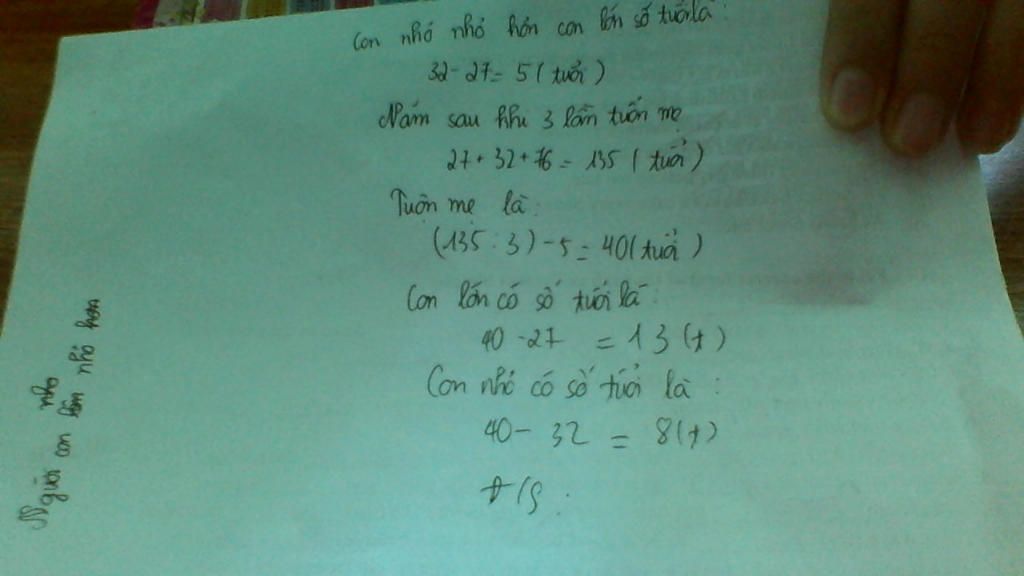 Con nhỏ nhỏ hơn con lớn số tuổi là:
32 - 27 = 5 (tuổi)
Năm sau khi 3 lần tuổi mẹ
27 + 32 + 76 = 135 (tuổi)
Tuổi mẹ là:
(135 : 3) - 5 = 40 (tuổi)
Con lớn có số tuổi là:
40 - 27 = 13 (t)
Con nhỏ có số tuổi là:
40 - 32 = 8 (t)
Đ/S:
nhỏ
Người con lớn nhỏ hơn